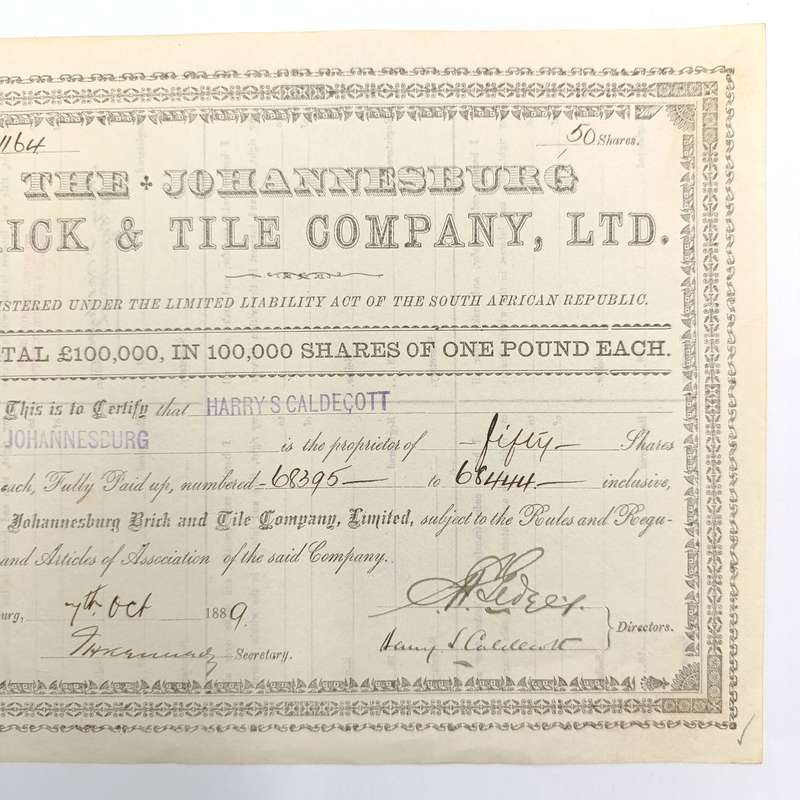 1164
50 Shares.
THE JOHANNESBURG
RICK & TILE COMPANY, LTD.
ISTERED UNDER THE LIMITED LIABILITY ACT OF THE SOUTH AFRICAN REPUBLIC.
TAL £100,000, IN 100,000 SHARES OF ONE POUND EACH.
This is to Certify that HARRY S CALDECOTT
JOHANNESBURG is the proprietor of fifty Shares
each, Fully Paid up, numbered 68395 to 68444 inclusive,
Johannesburg Brick and Tile Company, Limited, subject to the Rules and Regu-
and Articles of Association of the said Company.
urg, 7th Oct 1889.
Directors.
Harry S. Caldecott
Secretary.